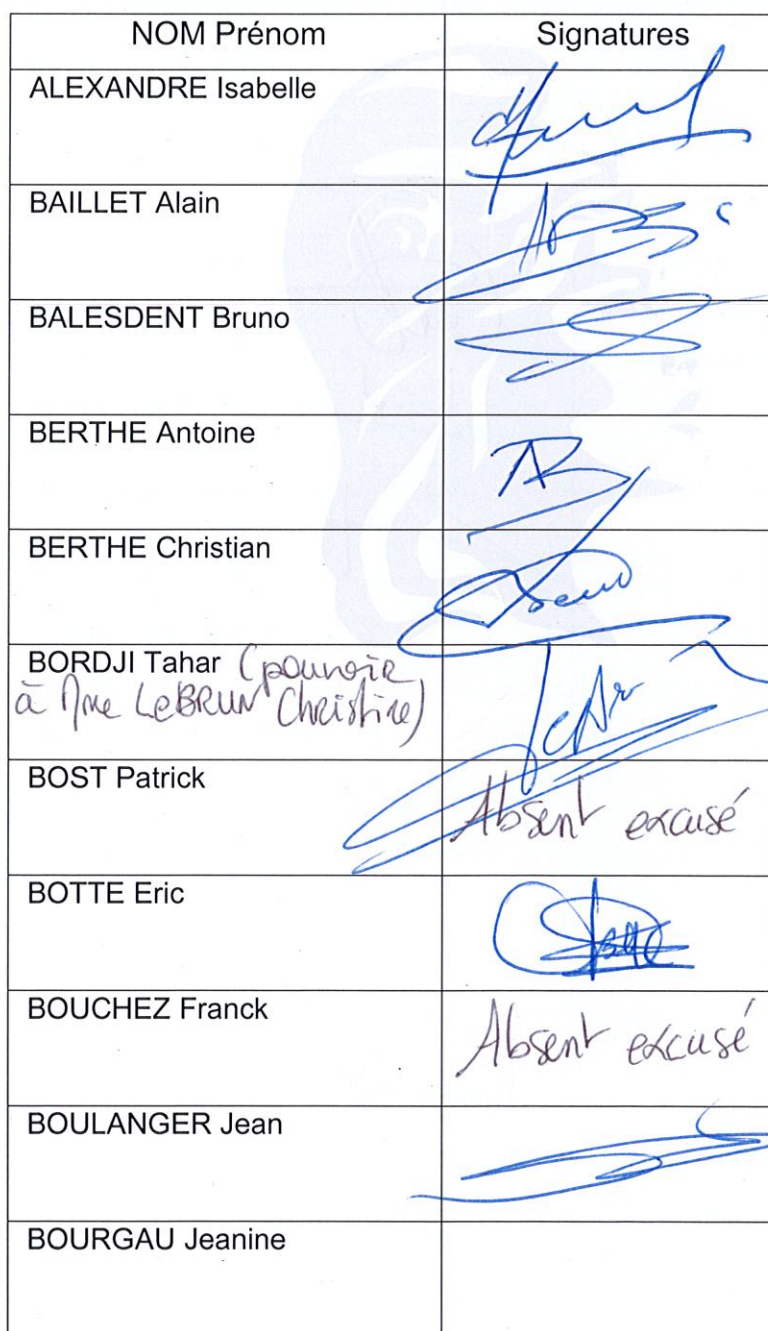 NOM Prénom Signatures
ALEXANDRE Isabelle
BAILLET Alain
BALESDENT Bruno
BERTHE Antoine
BERTHE Christian
BORDJI Tahar (pouvoir
à Mme LeBRUN Christine)
BOST Patrick
Absent excusé
BOTTE Eric
BOUCHEZ Franck
Absent excusé
BOULANGER Jean
BOURGAU Jeanine